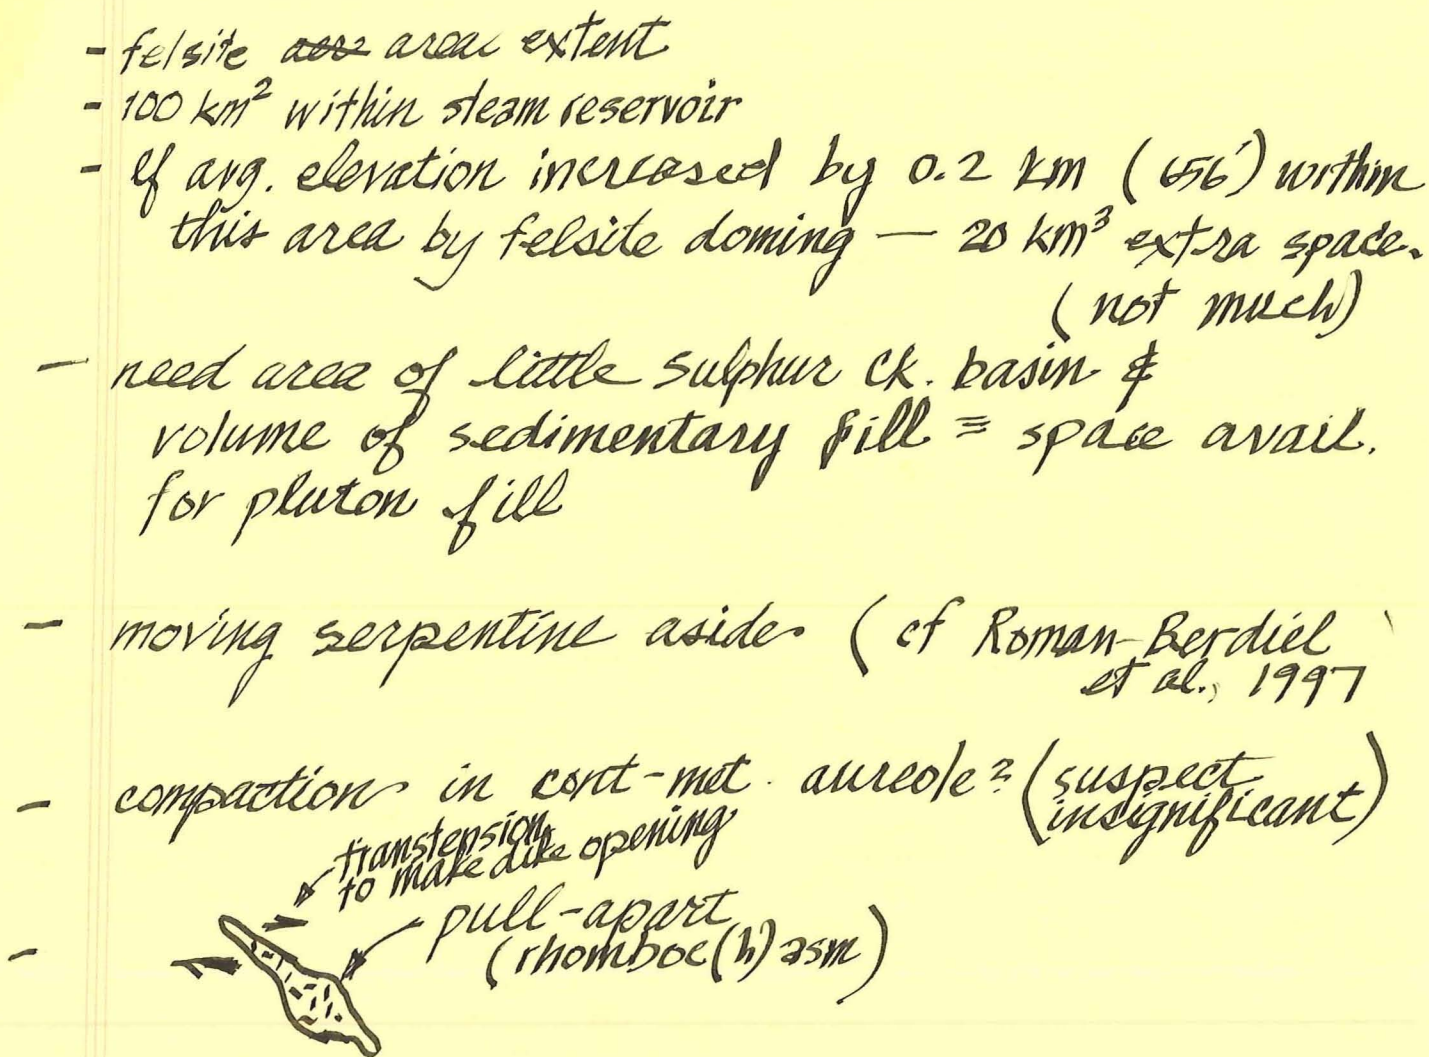 - felsite aer areal extent
- 100 km² within steam reservoir
- If avg. elevation increased by 0.2 km (656') within
this area by felsite doming — 20 km³ extra space.
(not much)
- need area of little sulphur ck. basin &
volume of sedimentary fill ≡ space avail.
for pluton fill
- moving serpentine aside (cf Roman-Berdiel
et al., 1997
- compaction in cont-met. aureole? (suspect
insignificant)
transtension
to make dike opening
- pull-apart
(rhomboc(h)asm)